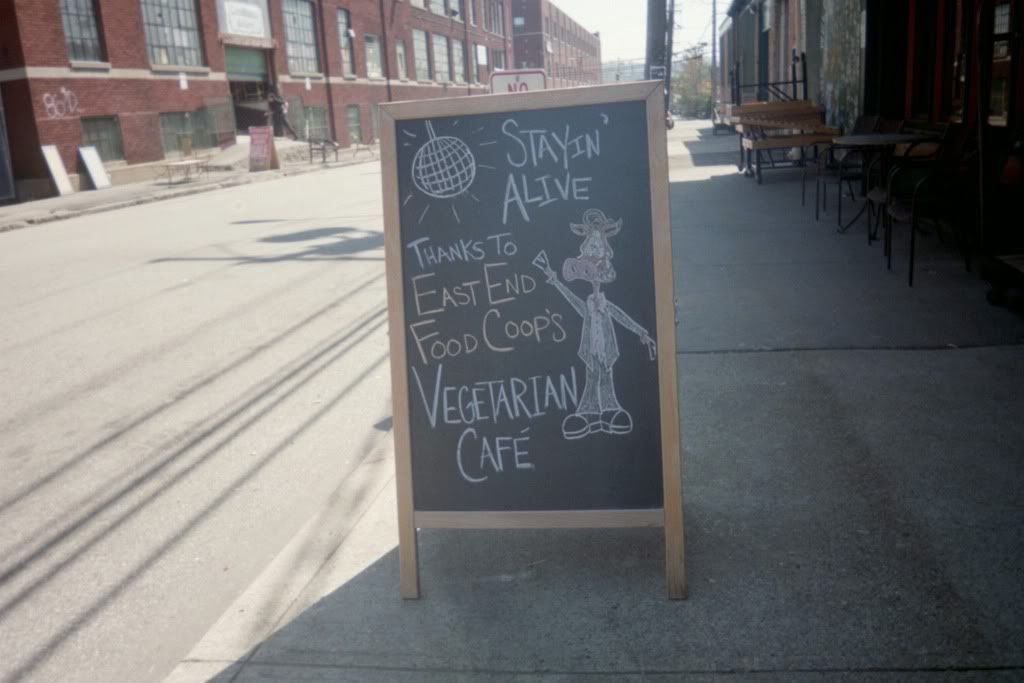 NO
STAYIN'
ALIVE
THANKS TO
EAST END
FOOD COOP'S
VEGETARIAN
CAFÉ